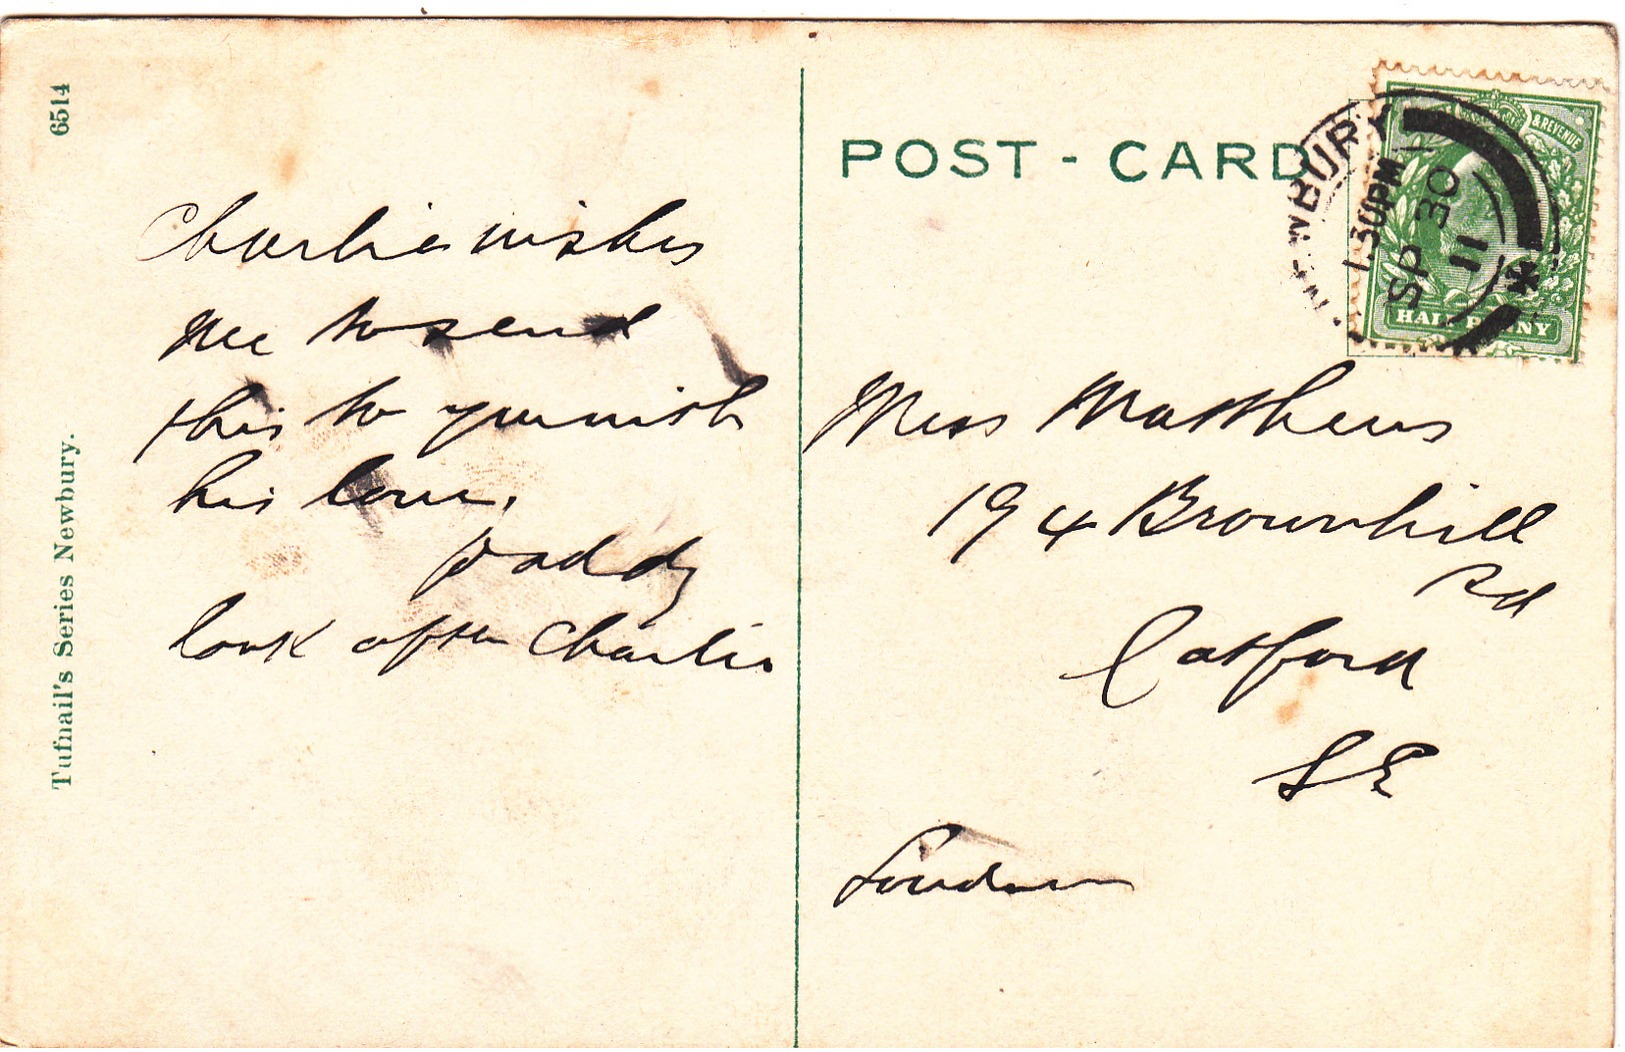 6514
Tufnail's Series Newbury.
Charlie wishes
me to send
this to you with
his love.
Daddy
look after Charlie
POST - CARD
NEWBURY
1.30 PM
SP 30
11
& REVENUE
HALF PENNY
Miss Matthews
194 Brownhill
Rd
Catford
S E
London